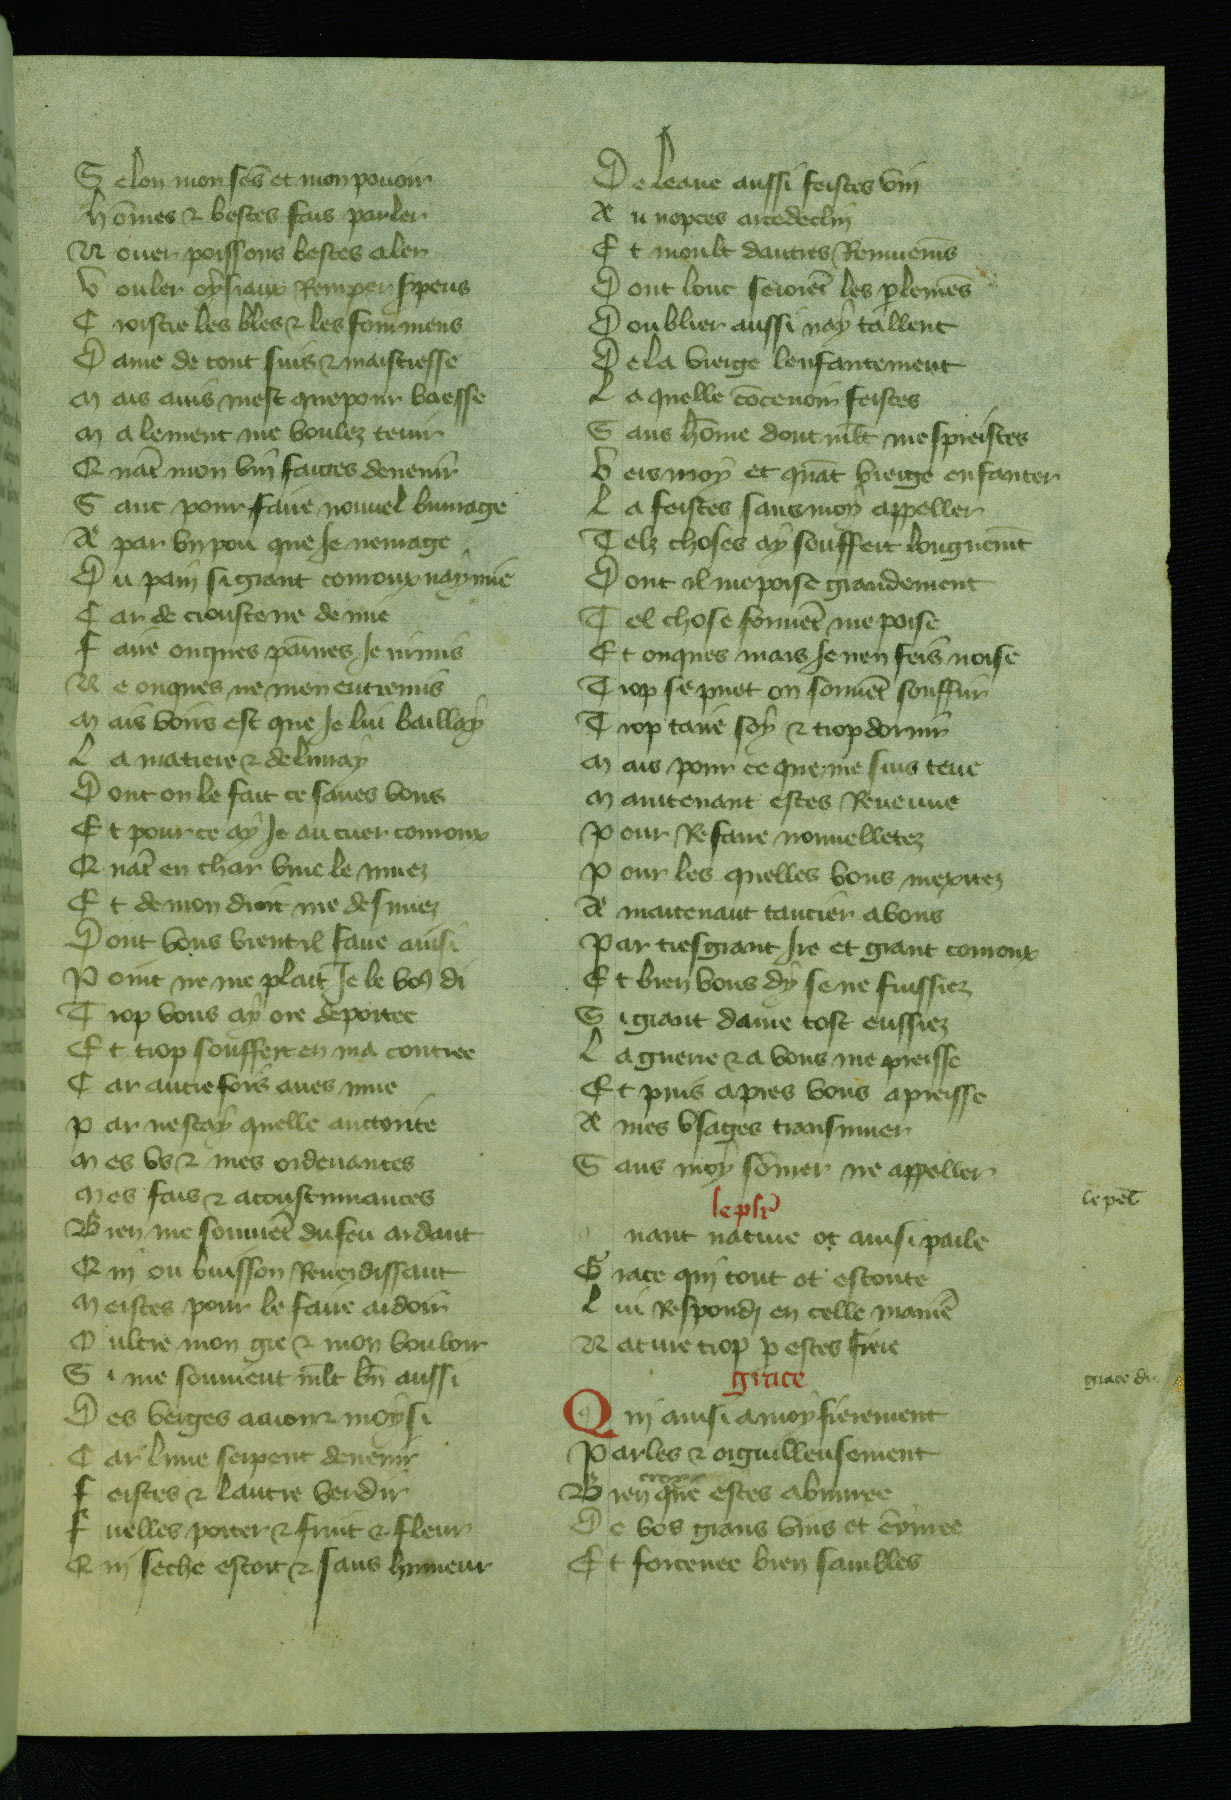 Selon mon sēs et mon pouoir
hōmes & bestes fais parler
Nouer poissons bestes aler
Vouler oysiaux Remper s̄pens
Croistre les bles & les fommens
Dame de tout suis & maistresse
Mais auis mest que pour baesse
Malement me voulez tenir
Quāt mon vin faictes deuenir
Sanc pour faire nouuel buurage
A par vn pou que Je nenrage
Du pain si grant courroux nay mie
Car de crouste ne de mie
faire onques paīnes Je ni mis
Ne onques ne men entremis
Mais voirs est que Je lui baillay
La matiere & deliuray
Dont on le fait ce saues vous
Et pour ce ay Je au cuer courroux
Quāt en char viue le muez
Et de mon droit me desnuez
Dont vous vient il faire ainsi
Point ne me plait Je le vo9 di
Trop vous ay ore deportee
Et trop souffert en ma contree
Car autre fois aues mue
Par ne scay quelle auctorite
Mes vs & mes ordenances
Mes fais & acoustumances
Bien me souuēt du feu ardant
Qui ou buisson Reuerdissant
Meistes pour le faire ardoir
Oultre mon gre & mon vouloir
Si me souuient m̄lt bn̄ aussi
Des verges aaron & moysi
Car lune serpent deuenir
feistes & lautre verdir
fuelles porter & fruit & fleur
Qui seche estoit & sans humeur
De leaue aussi feistes vin
Au nopces arcedeclin
Et moult dautres Remuemēs
Dont lonc seroiēt les p̄lemēs
Doublier aussi nay tallent
De la vierge lenfantement
Laquelle cōceuoir feistes
Sans hōme dont m̄lt mespreistes
Vers moy et quāt vierge enfanter
La feistes sans moy appeller
Telz choses ay souffert longuemēt
Dont il me poise grandement
Tel chose souuēt me poise
Et onques mais Je nen feis noise
Trop se puet on souuēt souffrir
Trop taire soy & trop dormir
Mais pour ce que me suis teue
Maintenant estes Reuenue
Pour Refaire nouuelletez
Pour les quelles vous mexitez
A maintenant tancier a vous
Par tresgrant Ire et grant courroux
Et bien vous dy se ne fuissiez
Si grant dame tost eussiez
La guerre & a vous me preisse
Et puis apres vous apreisse
A mes vsages transmuer
Sans moy sōmer ne appeller
le pel̄
le pelr̄
nant nature ot ainsi parle
Grace qui tout ot escoute
Lui Respondj en celle maniē
Nature trop p estes fiere
grace
grace di
Qui ainsi a moy fierement
Parles & orguilleusement
croy
Bien que estes abuuree
De vos grans vins et enyuree
Et forcenee bien sambles